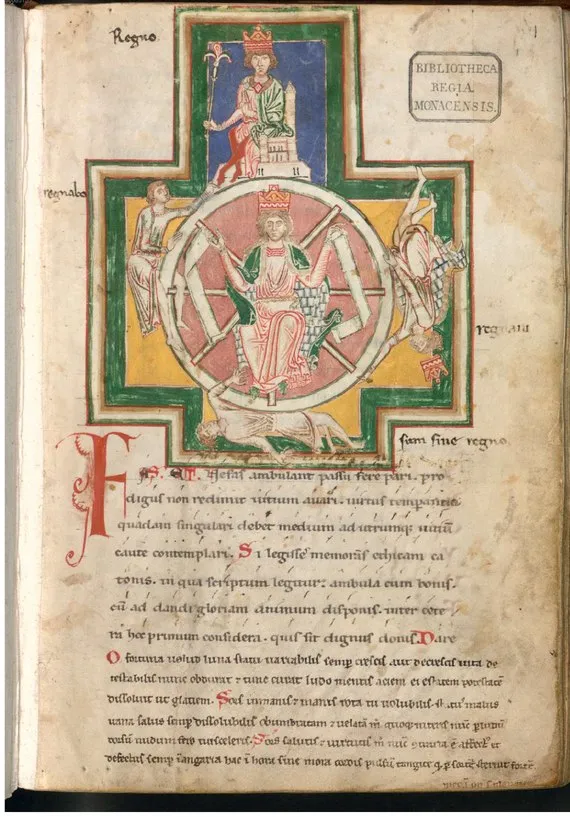 Regno
BIBLIOTHECA
REGIA
MONACENSIS.
regnabo
regnaui
sum sine regno
FAS ET Nefas ambulant passu fere pari. pro
digus non redimit uitium auari. uirtus temperantia
quadam singulari debet medium ad utrumq; uitiũ
caute contemplari. Si legisse memoras ethicam ca
tonis. in qua scriptum legitur: ambula cum bonis.
cũ ad dandi gloriam animum disponis. inter cete
ra hoc primum considera. quis sit dignus donis. Dare
O fortuna uelud luna statu uariabilis semp crescis aut decrescis uita de
testabilis nunc obdurat & tunc curat ludo mentis aciem potestatẽ
dissoluit ut glaciem. Sors inmanis & inanis rota tu uolubilis status malus
uana salus semp dissolubilis obumbratam & uelatã m quoq; niteris nũc
dorsũ nudum fero tui sceleris. Sors salutis & uirtutis m nũc
defectus semp in angaria hac in hora sine mora cordis pulsum tangite